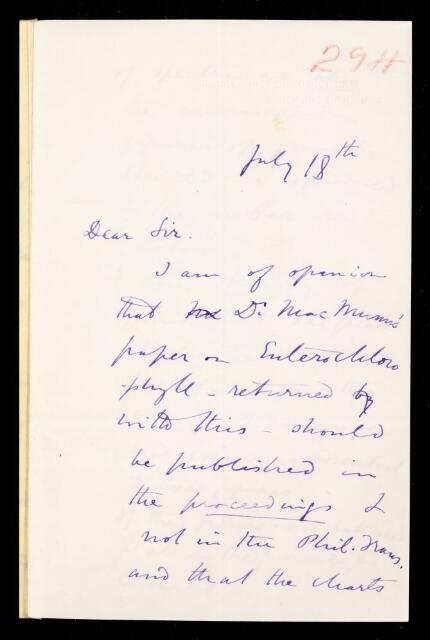 294
July 18th
Dear Sir.
I am of opinion
that Dr Mac Munn's
paper on Enterochloro
-phyll - returned by
with this - should
be published in
the proceedings &
not in the Phil. Trans.
and that the charts